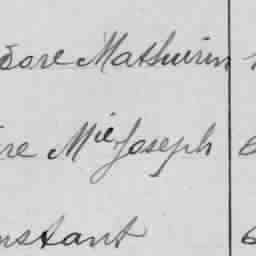 dore Mathurin
re Mie Joseph
nstant